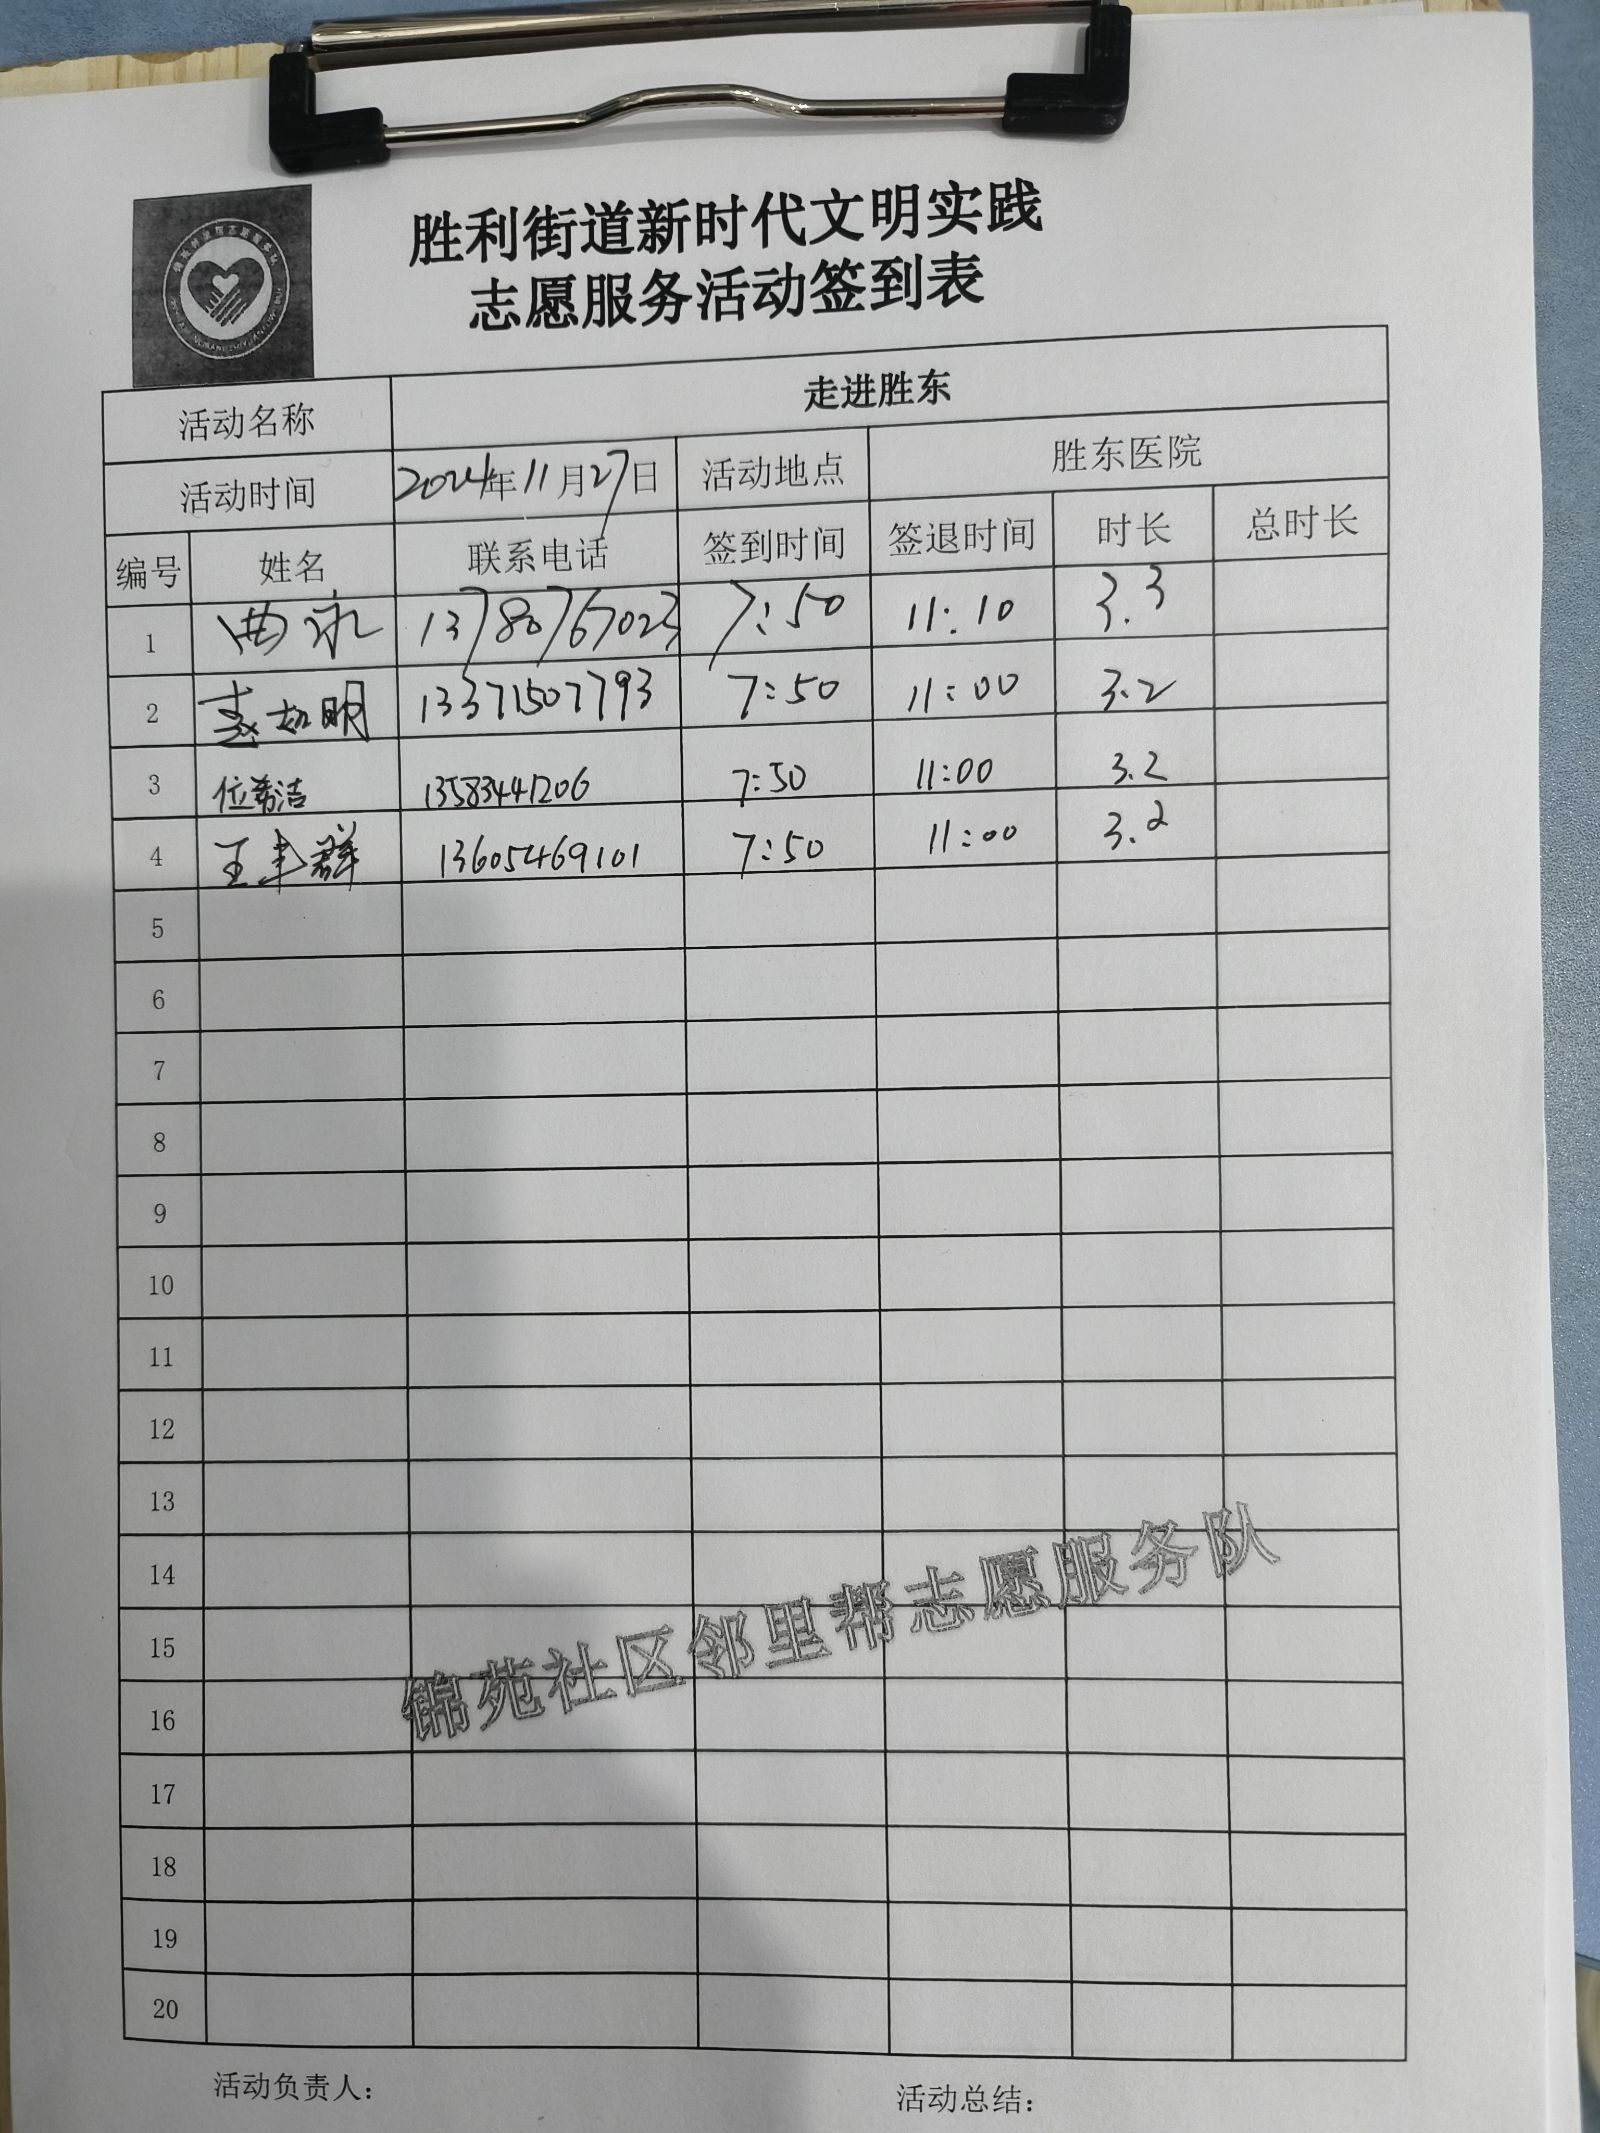 胜利街道新时代文明实践
志愿服务活动签到表
活动名称 走进胜东
活动时间 2024年11月27日 活动地点 胜东医院
编号 姓名 联系电话 签到时间 签退时间 时长 总时长
1 曲永 13780767023 7:50 11:10 3.3
2 明 13371507793 7:50 11:00 3.2
3 位希洁 13583441206 7:50 11:00 3.2
4 王丰群 13605469101 7:50 11:00 3.2
5
6
7
8
9
10
11
12
13
14
15
16
17
18
19
20
锦苑社区邻里帮志愿服务队
活动负责人: 活动总结: